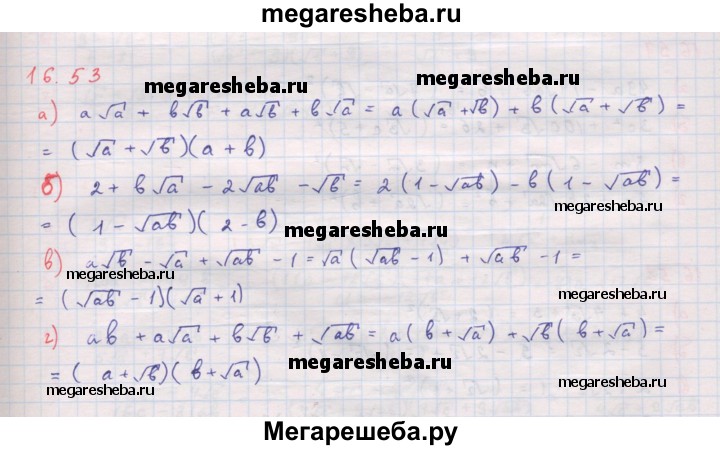 megaresheba.ru
16.53
megaresheba.ru
megaresheba.ru
а) a√a + b√b + a√b + b√a = a(√a + √b) + b(√a + √b) =
= (√a + √b)(a + b)
б) 2 + b√a - 2√ab - √b = 2(1 - √ab) - b(1 - √ab) =
megaresheba.ru
= (1 - √ab)(2 - b)
megaresheba.ru
в) a√b - √a + √ab - 1 = √a(√ab - 1) + √ab - 1 =
megaresheba.ru
= (√ab - 1)(√a + 1)
megaresheba.ru
г) ab + a√a + b√b + √ab = a(b + √a) + √b(b + √a) =
megaresheba.ru
= (a + √b)(b + √a)
megaresheba.ru
megaresheba.ru
Мегарешеба.ру